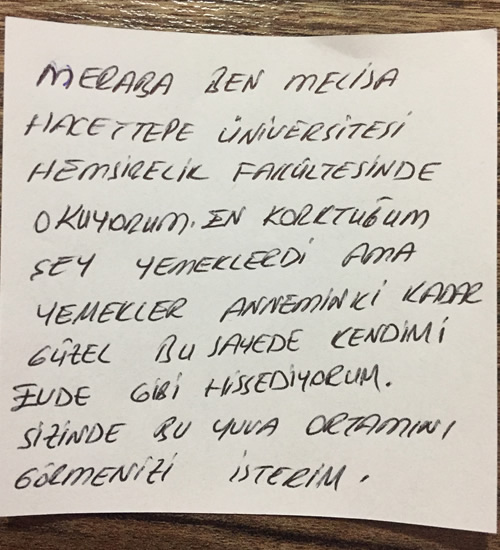 MERABA BEN MELİSA
HACETTEPE ÜNİVERSİTESİ
HEMŞİRELİK FAKÜLTESİNDE
OKUYORUM. EN KORKTUĞUM
ŞEY YEMEKLERDİ AMA
YEMEKLER ANNEMİNKİ KADAR
GÜZEL BU SAYEDE KENDİMİ
EVDE GİBİ HİSSEDİYORUM.
SİZİNDE BU YUVA ORTAMINI
GÖRMENİZİ İSTERİM.